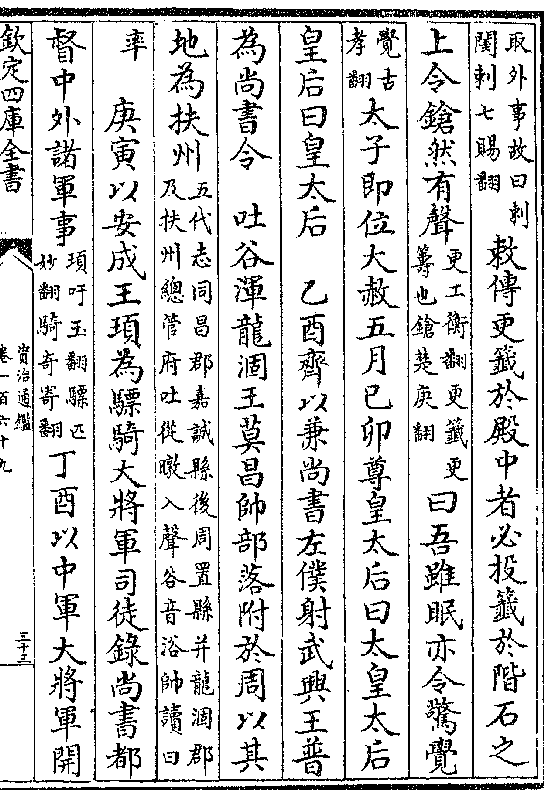 取外事故曰刺
閨刺七賜翻
敕傳更籤於殿中者必投籤於階石之
上令鎗然有聲
更工衡翻更籤更
籌也鎗楚庚翻
曰吾雖眠亦令驚覺
覺古
孝翻
太子即位大赦五月己卯尊皇太后曰太皇太后
皇后曰皇太后 乙酉齊以兼尚書左僕射武興王普
為尚書令 吐谷渾龍涸王莫昌帥部落附於周以其
地為扶州
五代志同昌郡嘉誠縣後周置縣并龍涸郡
及扶州總管府吐從暾入聲谷音浴帥讀曰
率
庚寅以安成王頊為驃騎大將軍司徒錄尚書都
督中外諸軍事
頊吁玉翻驃匹
妙翻騎奇寄翻
丁酉以中軍大將軍開
欽定四庫全書
資治通鑑
卷一百六十九
三十三